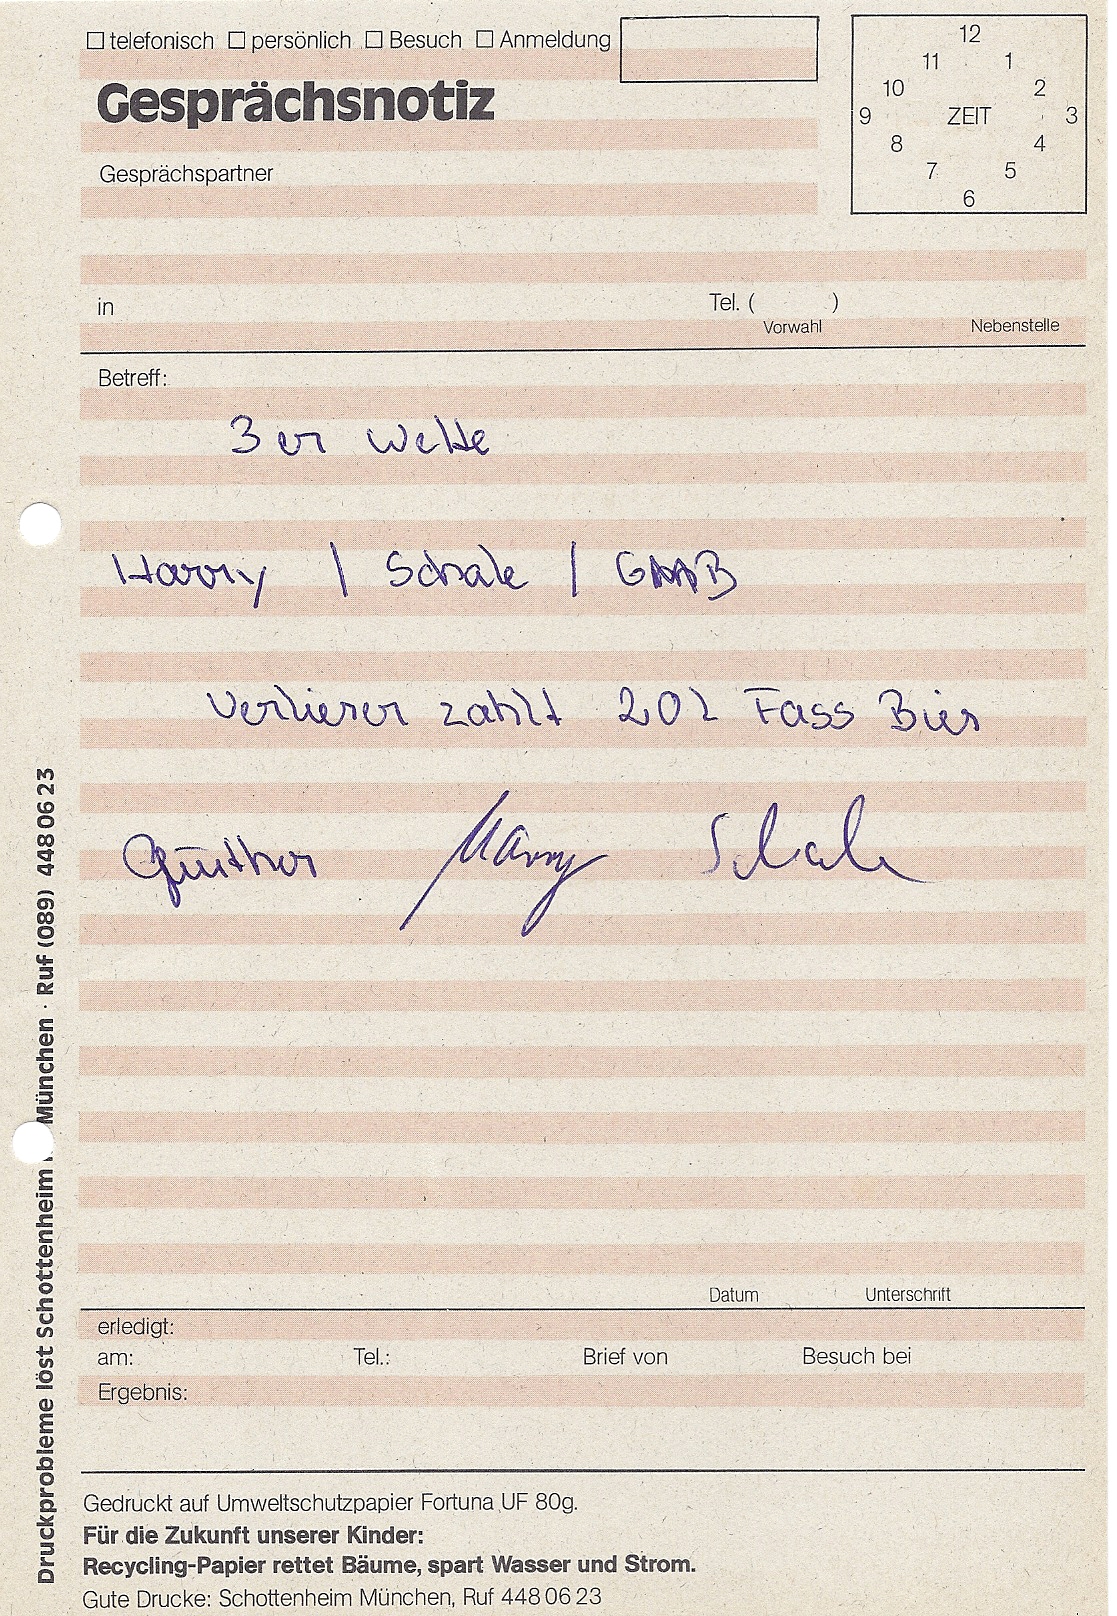 ☐ telefonisch ☐ persönlich ☐ Besuch ☐ Anmeldung
Gesprächsnotiz
Gesprächspartner
12
11 1
10 2
9 ZEIT 3
8 4
7 5
6
in Tel. ( )
Vorwahl Nebenstelle
Betreff:
3er Wette
Harry / Schale / GAAB
Verlierer zahlt 20l Fass Bier
Günther Harry Schale
Datum Unterschrift
erledigt:
am: Tel.: Brief von Besuch bei
Ergebnis:
Gedruckt auf Umweltschutzpapier Fortuna UF 80g.
Für die Zukunft unserer Kinder:
Recycling-Papier rettet Bäume, spart Wasser und Strom.
Gute Drucke: Schottenheim München, Ruf 448 06 23
Druckprobleme löst Schottenheim München · Ruf (089) 448 06 23